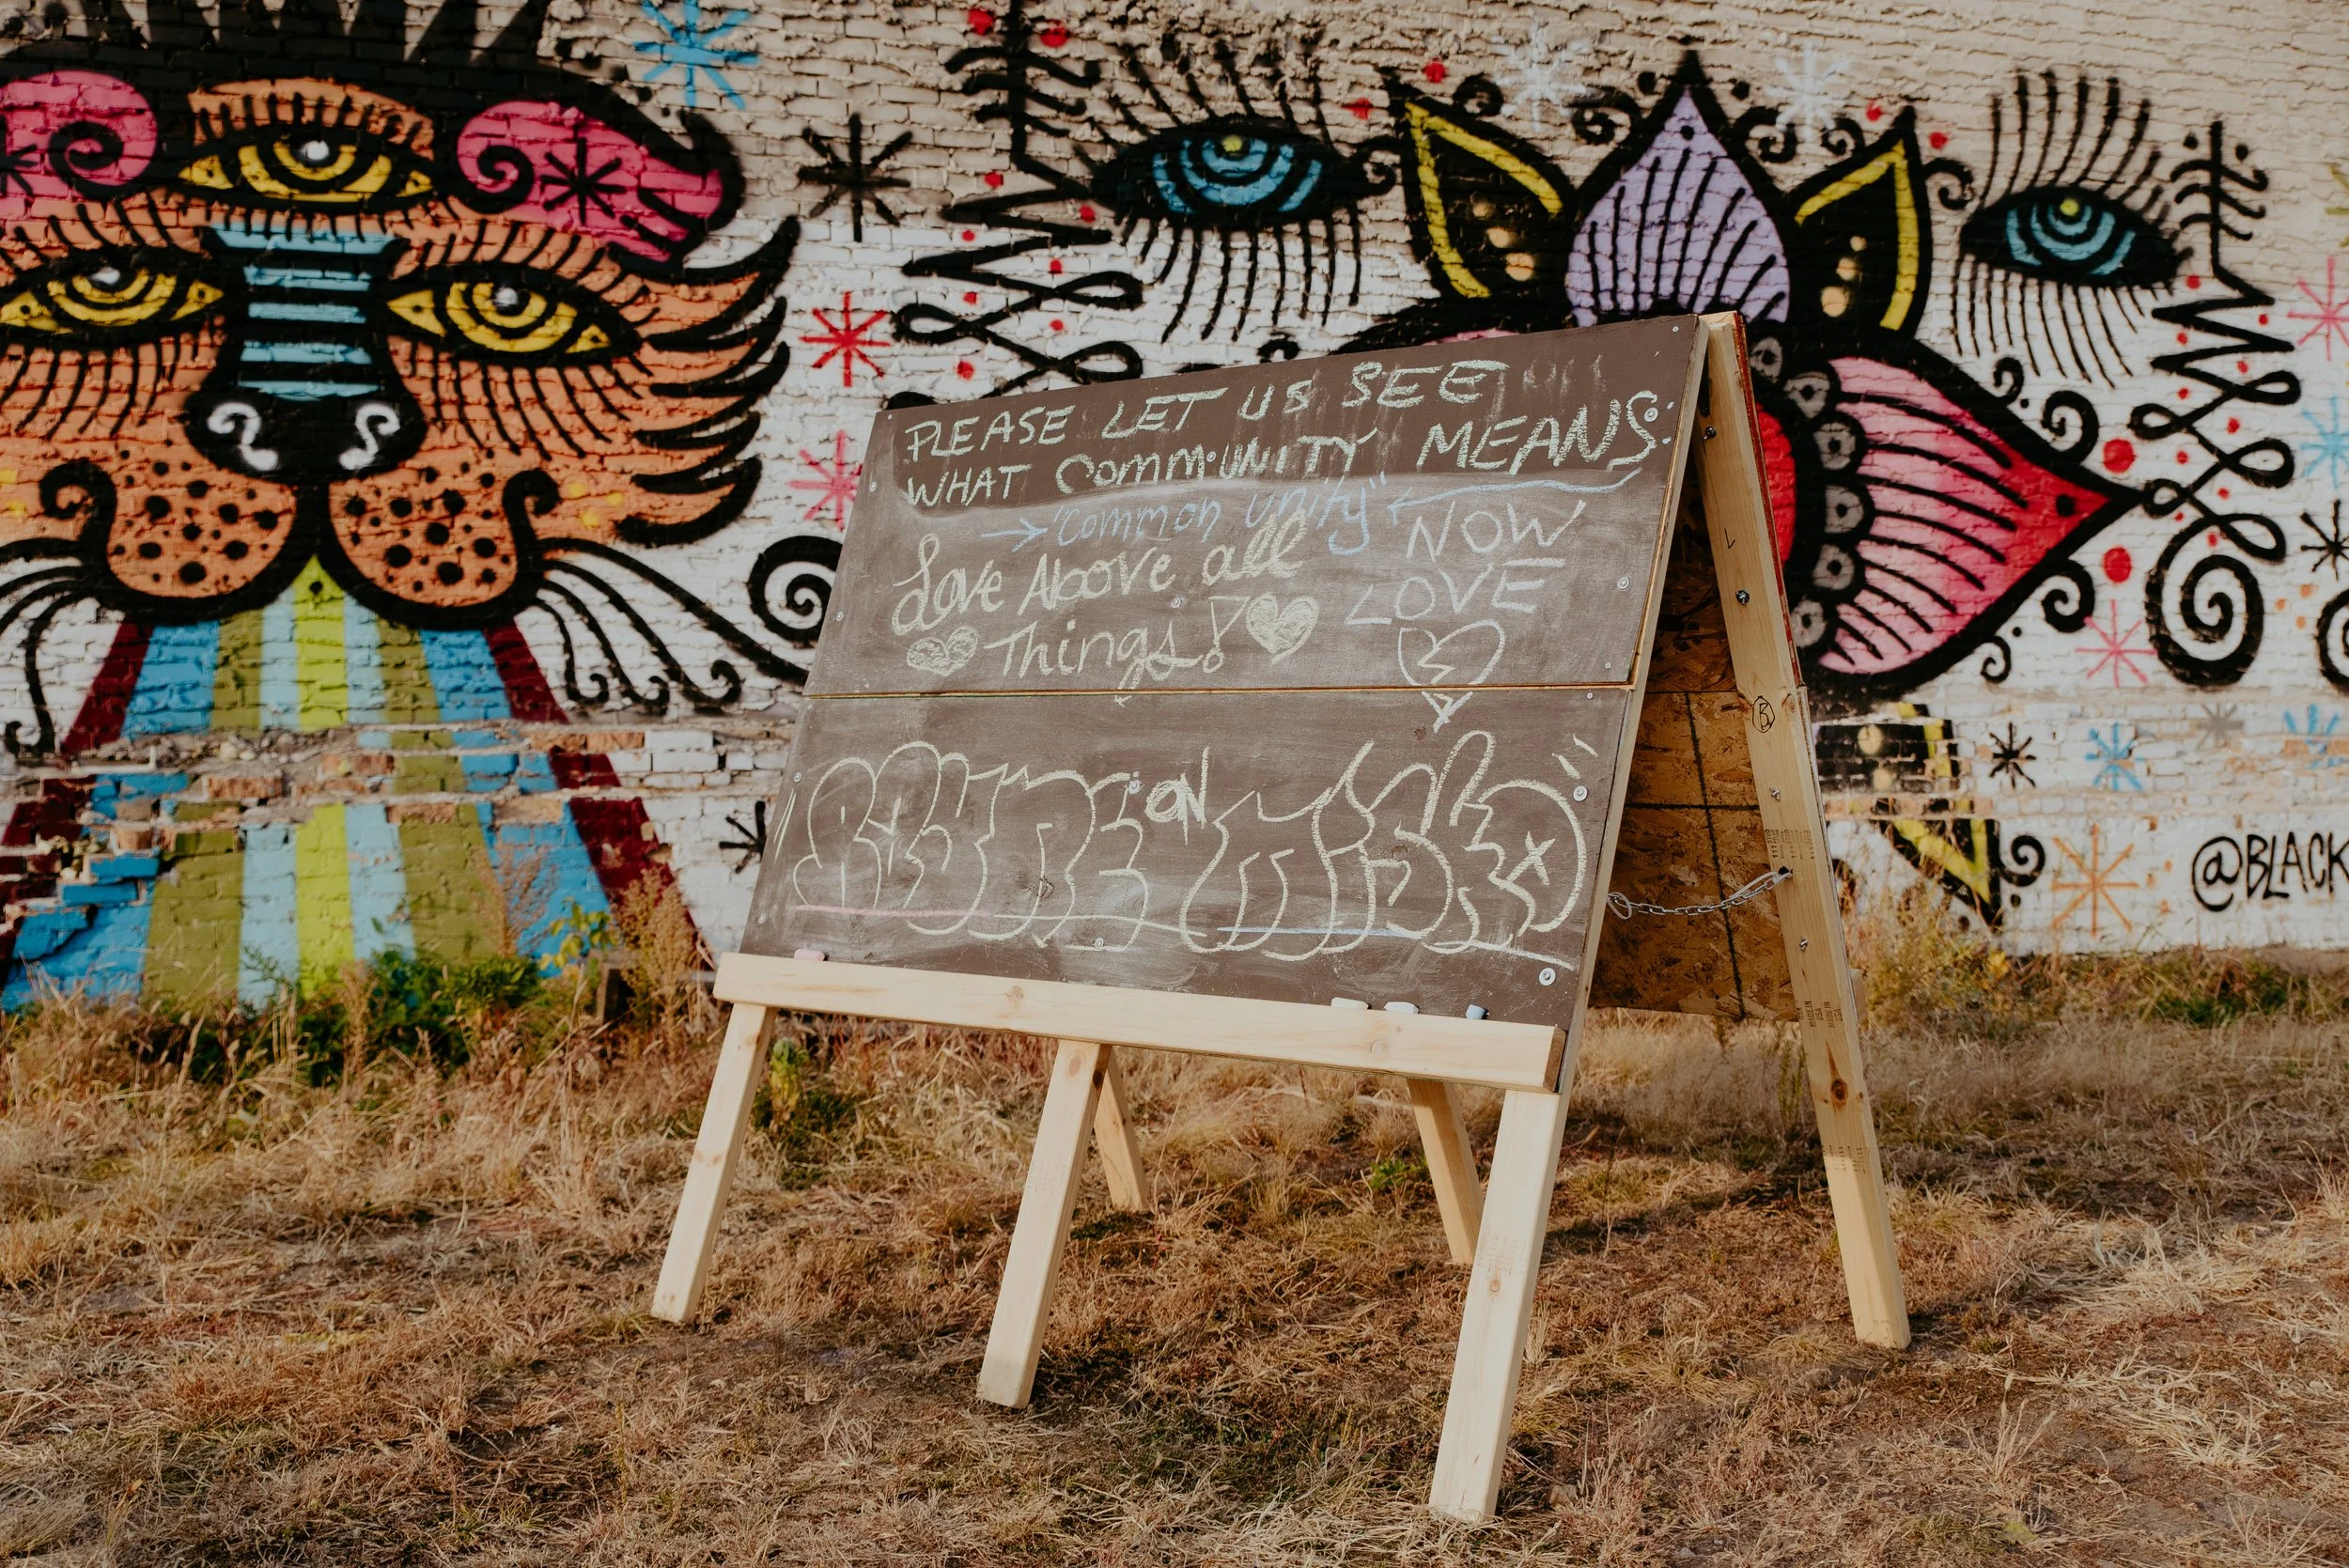 PLEASE LET US SEE
WHAT COMMUNITY MEANS:
"Common Unity"
Love Above all
Things!
NOW
LOVE
ON
@BLACK
B